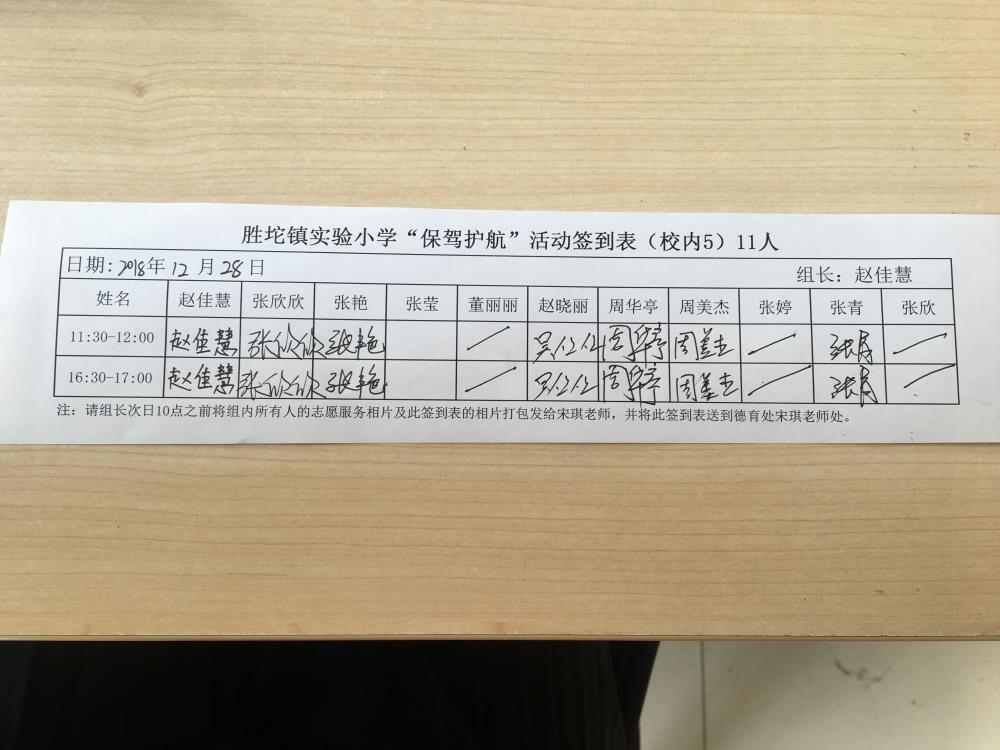 胜坨镇实验小学“保驾护航”活动签到表（校内5）11人
日期：2018年 12 月 28 日 组长：赵佳慧
姓名 赵佳慧 张欣欣 张艳 张莹 董丽丽 赵晓丽 周华亭 周美杰 张婷 张青 张欣
11:30-12:00 赵佳慧 张欣欣 张艳 周华亭 周美杰 张青
16:30-17:00 赵佳慧 张欣欣 张艳 周华亭 周美杰 张青
注：请组长次日10点之前将组内所有人的志愿服务相片及此签到表的相片打包发给宋琪老师，并将此签到表送到德育处宋琪老师处。